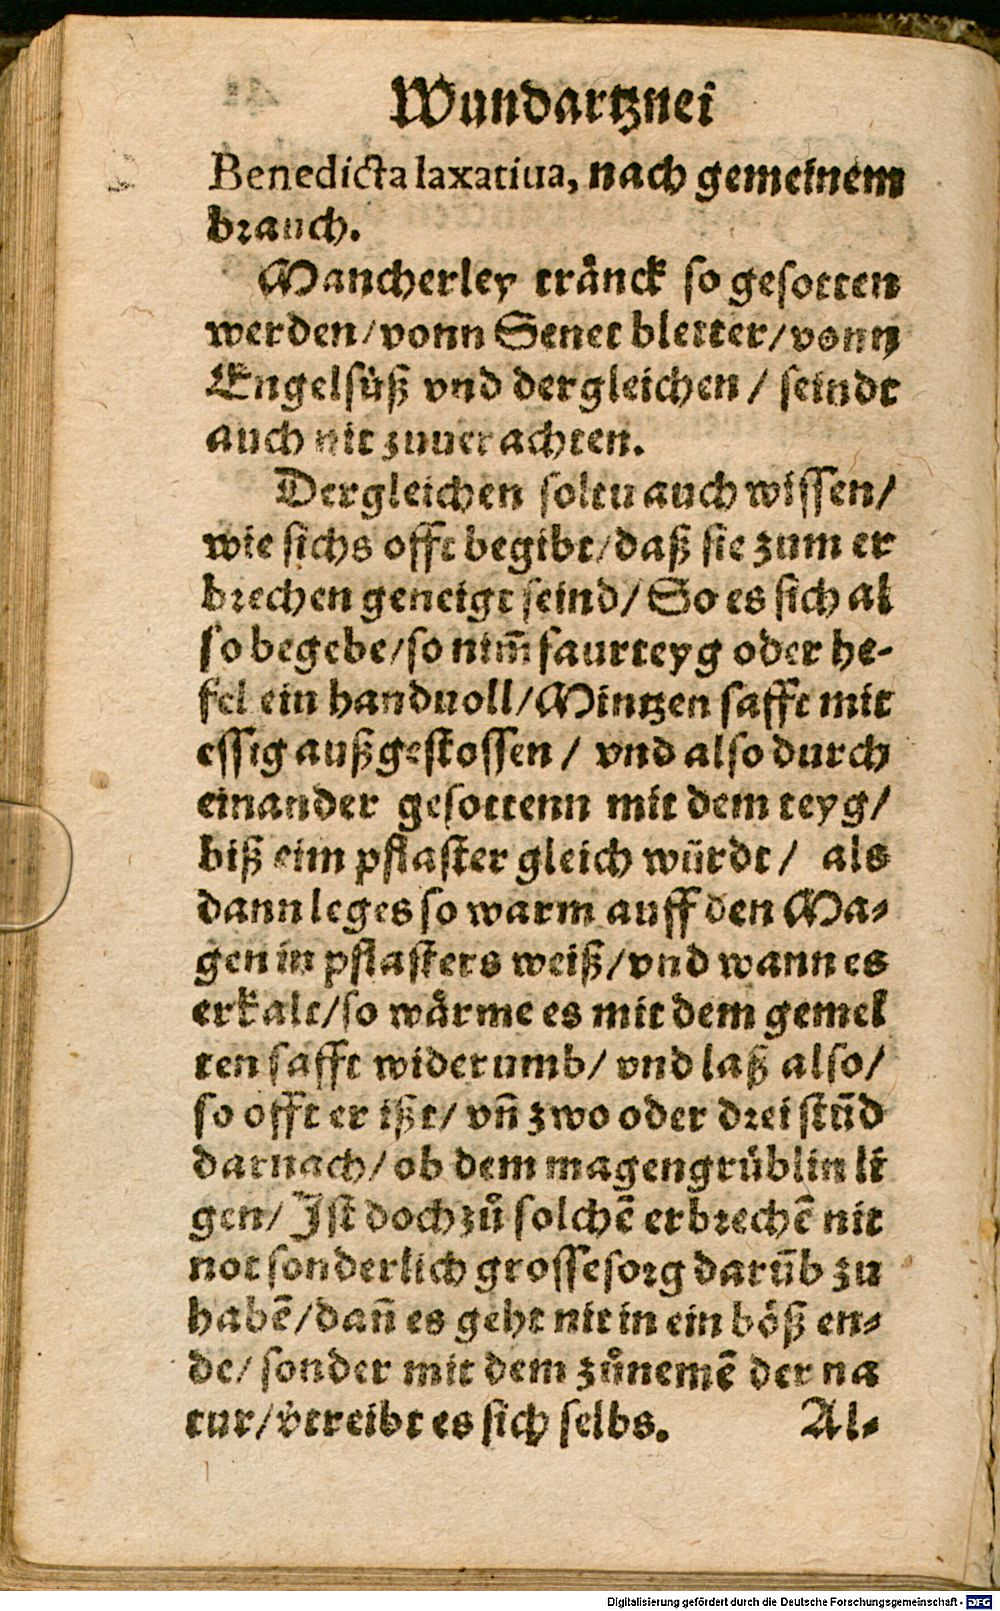 Wundartznei
Benedicta laxatiua, nach gemeinem
brauch.
Mancherley tränck so gesotten
werden/vonn Senet bletter/vonn
Engelsüß vnd dergleichen / seindt
auch nit zuuerachten.
Dergleichen soltu auch wissen/
wie sichs offt begibt/daß sie zum er
brechen geneigt seind/ So es sich al
so begebe/so nim̃ saurteyg oder he-
fel ein handuoll/Mintzen safft mit
essig außgestossen / vnd also durch
einander gesottenn mit dem teyg/
biß eim pflaster gleich würdt / als
dann leges so warm auff den Ma-
gen in pflasters weiß/vnd wann es
erkalt/so wärme es mit dem gemel
ten safft widerumb/ vnd laß also/
so offt er ißt/ vñ zwo oder drei stũd
darnach/ob dem magengrüblin li
gen/ Ist doch zů solchẽ erbrechẽ nit
not sonderlich grosse sorg darũb zu
habẽ/dañ es geht nit in ein böß en-
de/ sonder mit dem zůnemẽ der na
tur/v̓treibt es sich selbs. Al-
Digitalisierung gefördert durch die Deutsche Forschungsgemeinschaft - DFG